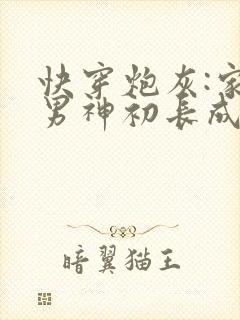 快穿炮灰:家
男神初长成
暗翼猫王